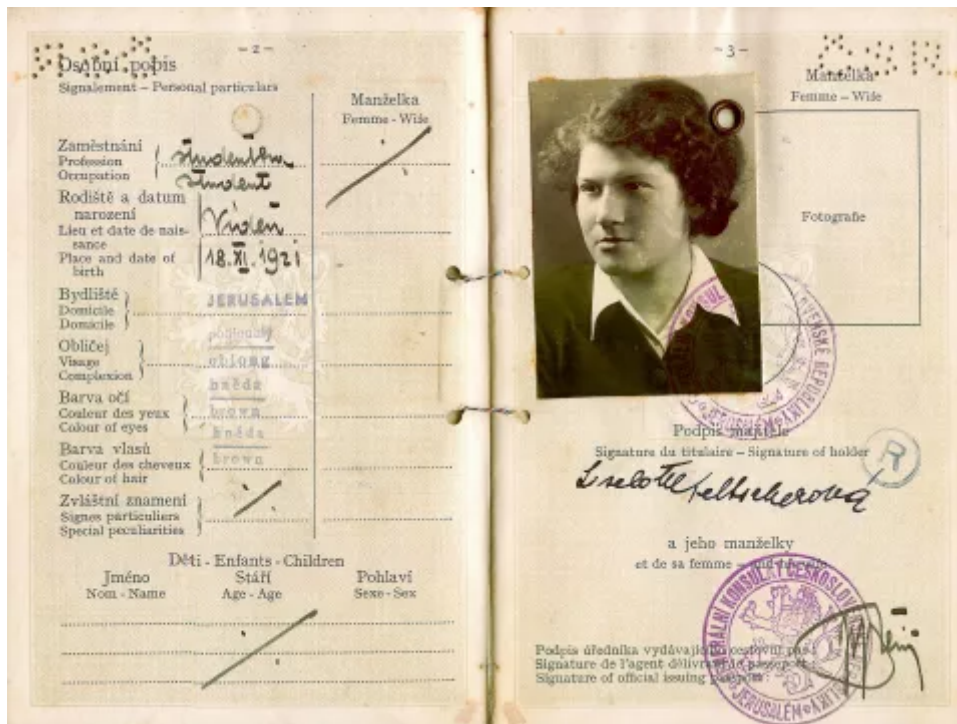 — 2 —
Osobní popis
Signalement – Personal particulars
Manželka
Femme - Wife
Zaměstnání
Profession
Occupation
studentem
student
Rodiště a datum
narození
Lieu et date de nais-
sance
Place and date of
birth
Vídeň
18. XI. 1921
Bydliště
Domicile
Domicile
JERUSALEM
Obličej
Visage
Complexion
podlouhlý
oblong
Barva očí
Couleur des yeux
Colour of eyes
hnědá
brown
Barva vlasů
Couleur des cheveux
Colour of hair
hnědá
brown
Zvláštní znamení
Signes particuliers
Special peculiarities
Děti - Enfants - Children
Jméno
Nom - Name
Stáří
Age - Age
Pohlaví
Sexe - Sex
— 3 —
Manželka
Femme – Wife
Fotografie
Podpis majitele
Signature du titulaire – Signature of holder
R
a jeho manželky
et de sa femme – and his wife
Podpis úředníka vydávajícího cestovní pas:
Signature de l'agent délivrant le passeport:
Signature of official issuing passport:
GENERÁLNÍ KONSULÁT ČESKOSLOVENSKÉ REPUBLIKY
JERUSALÉM